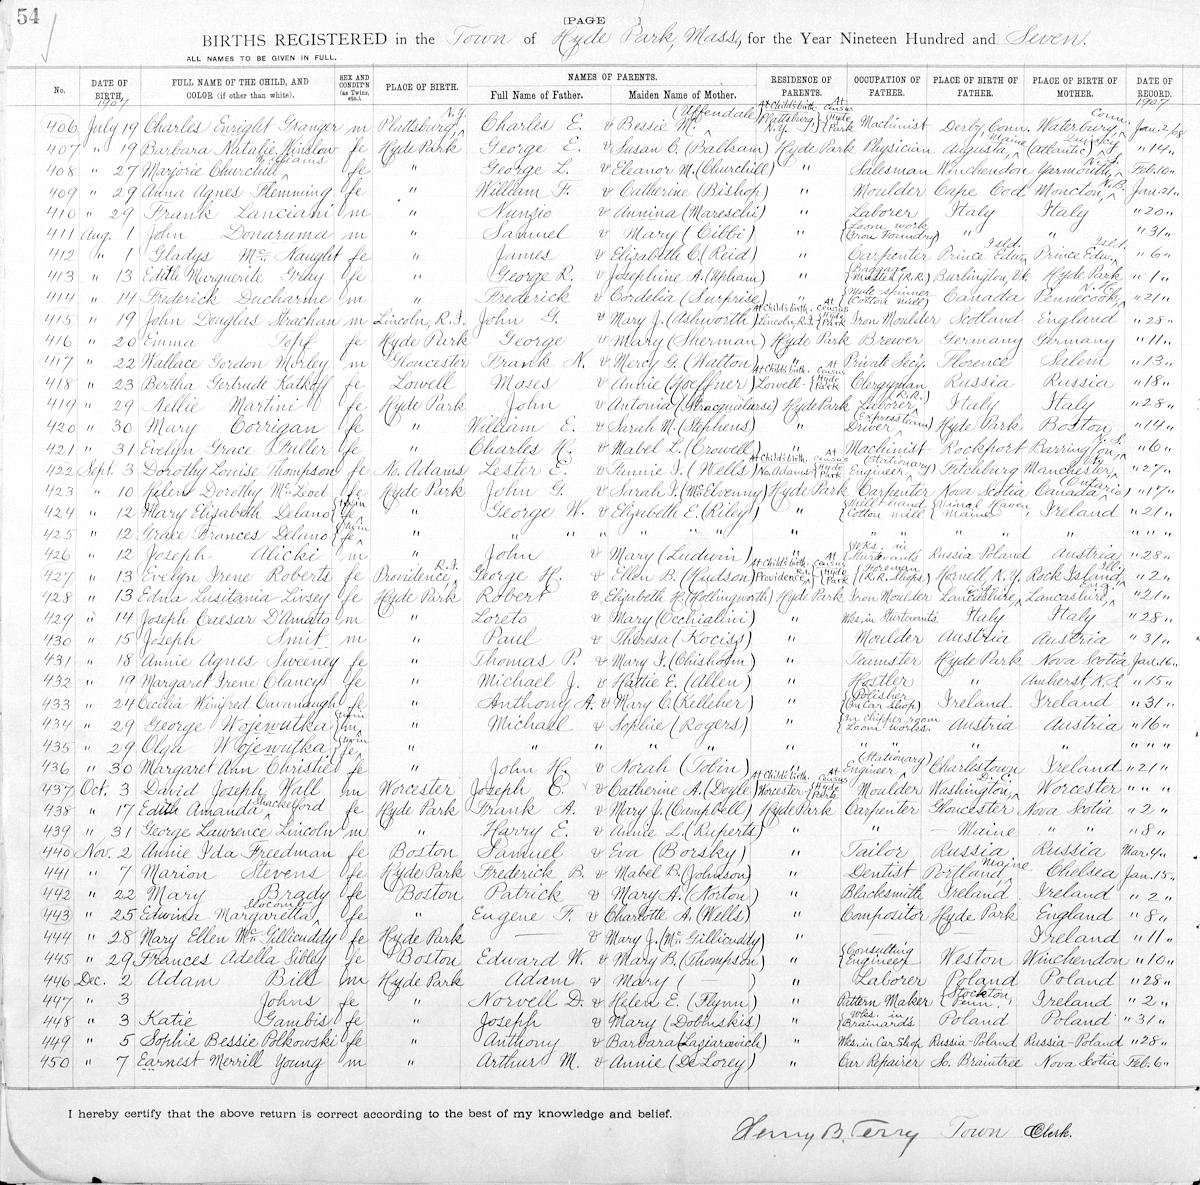 54
[PAGE
BIRTHS REGISTERED in the Town of Hyde Park, Mass., for the Year Nineteen Hundred and Seven.
ALL NAMES TO BE GIVEN IN FULL.
No. DATE OF BIRTH, 1907 FULL NAME OF THE CHILD, AND COLOR (if other than white). SEX AND CONDIT'N (as Twins, etc.) PLACE OF BIRTH. NAMES OF PARENTS. Full Name of Father. Maiden Name of Mother. RESIDENCE OF PARENTS. OCCUPATION OF FATHER. PLACE OF BIRTH OF FATHER. PLACE OF BIRTH OF MOTHER. DATE OF RECORD. 1907
406 July 19 Charles Enright Granger m Plattsburg, N.Y. Charles E. & Bessie M. (Uffendale) At Child's birth Plattsburg N.Y. At Census Hyde Park Machinist Derby Conn. Waterbury, Conn. Jan. 2/08
407 " 19 Barbara Natalie Winslow fe Hyde Park George E. & Susan C. (Balkam) Hyde Park Physician Augusta, Maine (Atlantic) Quincy " 14 "
408 " 27 Marjorie Churchill Williams fe " George L. & Eleanor M. (Churchill) " Salesman Winchendon Yarmouth, N.S. Feb. 10 "
409 " 29 Anna Agnes Flemming fe " William F. & Catherine (Bishop) " Moulder Cape Cod Moncton, N.B. Jan. 21 "
410 " 29 Frank Lanciani m " Nunzio & Annina (Mareschi) " Laborer Italy Italy " 20 "
411 Aug. 1 John Donaruma m " Samuel & Mary (Cibbi) " Loom work (Iron Foundry) " " " 31 "
412 " 1 Gladys McNaught fe " James & Elisabeth C. (Reid) " Carpenter Prince Edw. Isld. Prince Edw. Isld. " 6 "
413 " 13 Edith Marguerite Gray fe " George R. & Josephine A. (Upham) " Baggage master (R.R.) Burlington, Vt. Hyde Park " 1 "
414 " 14 Frederick Ducharme m " Frederick & Cordelia (Surprise) " Mule spinner (Cotton mill) Canada Pennecook, N.H. " 21 "
415 " 19 John Douglas Strachan m Lincoln, R.I. John G. & Mary J. (Ashworth) At Child's birth Lincoln, R.I. At Census Hyde Park Iron Moulder Scotland England " 28 "
416 " 20 Emma Topf fe Hyde Park George & Mary (Sherman) Hyde Park Brewer Germany Germany " 11 "
417 " 22 Wallace Gordon Morley m Gloucester Frank N. & Mercy G. (Walton) " Private Sec'y. Florence Salem " 13 "
418 " 23 Bertha Gertrude Katkoff fe Lowell Moses & Annie (Goeffner) At Child's birth Lowell At Census Hyde Park Clergyman Russia Russia " 18 "
419 " 29 Nellie Martini fe Hyde Park John & Antonia (Stracqualarsi) Hyde Park Laborer (R.R.) Italy Italy " 28 "
420 " 30 Mary Corrigan fe " William E. & Sarah M. (Stephens) " Driver (Express team) Hyde Park Boston " 14 "
421 " 31 Evelyn Grace Fuller fe " Charles H. & Mabel L. (Crowell) " Machinist Rockport Barrington, N.S. " 6 "
422 Sept. 3 Dorothy Louise Thompson fe No. Adams Lester E. & Fannie I. (Wells) At Child's birth No. Adams At Census Hyde Park Engineer (Stationary) Fitchburg Manchester " 27 "
423 " 10 Helen Dorothy McLeod fe Hyde Park John G. & Sarah I. (McElvenny) Hyde Park Carpenter Nova Scotia Canada (Ontario) " 17 "
424 " 12 Mary Elisabeth Delano twin fe " George W. & Elizabeth E. (Riley) " Mill hand Cotton mill Vinal Haven, Maine Ireland " 21 "
425 " 12 Grace Frances Delano twin fe " " " " " " " " " "
426 " 12 Joseph Alicki m " John & Mary (Ludwin) " Wks. in Sturtevants Russia Poland Austria " 28 "
427 " 13 Evelyn Irene Roberts fe Providence, R.I. George H. & Ellen B. (Hudson) At Child's birth Providence, R.I. At Census Hyde Park Foreman (R.R. Shops) Hornell, N.Y. Rock Island, Ill. " 2 "
428 " 13 Edna Lusitania Livsey fe Hyde Park Robert & Elizabeth H. (Hollingworth) Hyde Park Iron Moulder Lancashire, Eng. Lancashire, Eng. " 21 "
429 " 14 Joseph Caesar D'Amato m " Loreto & Mary (Occhialini) " Wks. in Sturtevants Italy Italy " 28 "
430 " 15 Joseph Smit m " Paul & Theresa (Kociss) " Moulder Austria Austria " 31 "
431 " 18 Annie Agnes Sweeney fe " Thomas P. & Mary F. (Chisholm) " Teamster Hyde Park Nova Scotia Jan. 16 "
432 " 19 Margaret Irene Clancy fe " Michael J. & Hattie E. (Allen) " Hostler " Amherst, N.S. " 15 "
433 " 24 Cecilia Winifred Cavanaugh fe " Anthony A. & Mary C. (Kelleher) " Polisher (in Car Shop) Ireland Ireland " 31 "
434 " 29 George Wojewutka twin m " Michael & Sophie (Rogers) " In chipper room Loom works. Austria Austria " 16 "
435 " 29 Olga Wojewutka twin fe " " " " " " " " " "
436 " 30 Margaret Ann Christie fe " John H. & Norah (Tobin) " Engineer (Stationary) Charlestown Ireland " 21 "
437 Oct. 3 David Joseph Wall m Worcester Joseph C. & Catherine A. (Doyle) At Child's birth Worcester At Census Hyde Park Moulder Washington, D.C. Worcester " " "
438 " 17 Edith Amanda Shackelford fe Hyde Park Frank A. & Mary J. (Campbell) Hyde Park Carpenter Gloucester Nova Scotia " 2 "
439 " 31 George Lawrence Lincoln m " Harry E. & Annie L. (Ruperts) " " — Maine " " " 8 "
440 Nov. 2 Annie Ida Freedman fe Boston Samuel & Eva (Borsky) " Tailor Russia Russia Mar. 4 "
441 " 7 Marion Stevens fe Hyde Park Frederick B. & Mabel B. (Johnson) " Dentist Portland, Maine Chelsea Jan. 15 "
442 " 22 Mary Brady fe Boston Patrick & Mary A. (Norton) " Blacksmith Ireland Ireland " 2 "
443 " 25 Edwina Margaretta Slocomb fe " Eugene F. & Charlotte A. (Wells) " Compositor Hyde Park England " 8 "
444 " 28 Mary Ellen McGillicuddy fe Hyde Park — & Mary J. (McGillicuddy) " — Ireland " 11 "
445 " 29 Frances Adella Sibley fe Boston Edward W. & Mary B. (Thompson) " Consulting Engineer Weston Winchendon " 10 "
446 Dec. 2 Adam Bills m Hyde Park Adam & Mary ( — ) " Laborer Poland Poland " 28 "
447 " 3 Johns fe " Norvell D. & Helen E. (Flynn) " Pattern Maker Stockton Penn. Ireland " 2 "
448 " 3 Katie Gambis fe " Joseph & Mary (Dobinskis) " Wks. in Brainard's Poland Poland " 31 "
449 " 5 Sophie Bessie Polkowski fe " Anthony & Barbara (Lagiarovich) " Wks. in Car Shop Russia-Poland Russia-Poland " 28 "
450 " 7 Earnest Merrill Young m " Arthur M. & Annie (DeLorey) " Car Repairer So. Braintree Nova Scotia Feb. 6 "
I hereby certify that the above return is correct according to the best of my knowledge and belief.
Henry B. Terry Town Clerk.